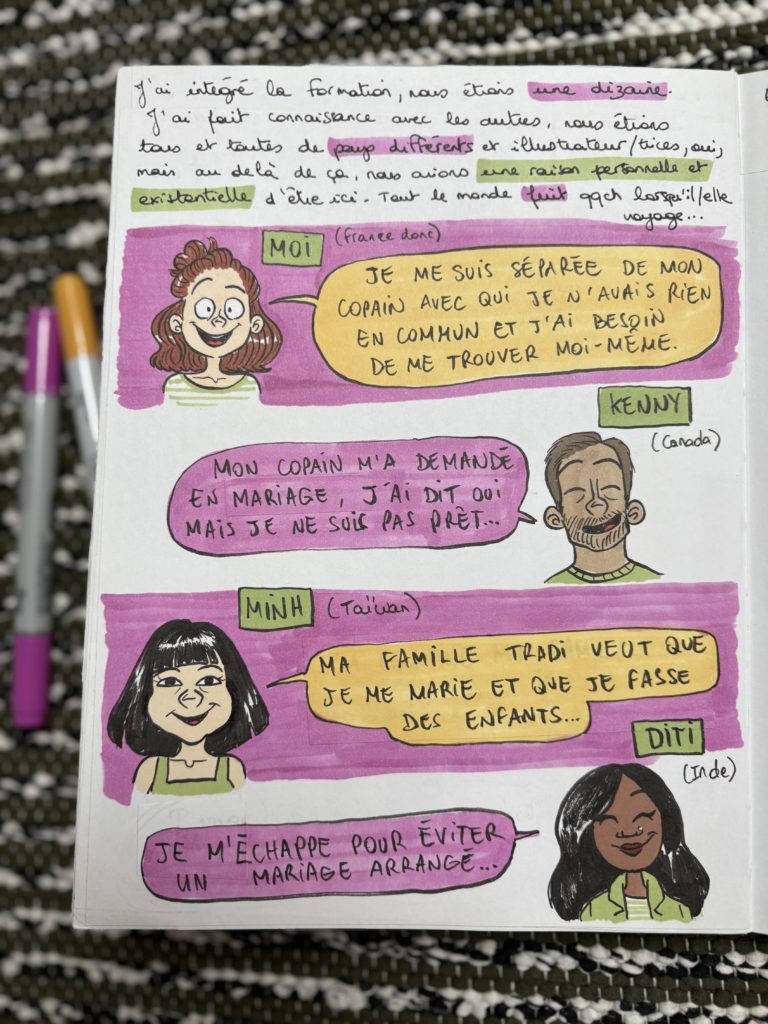 J'ai intégré la formation, nous étions une dizaine.
J'ai fait connaissance avec les autres, nous étions
tous et toutes de pays différents et illustrateur/trices, oui,
mais au delà de ça, nous avions une raison personnelle et
existentielle d'être ici. Tout le monde fuit qqch lorsqu'il/elle
voyage...
MOI (France donc)
JE ME SUIS SÉPARÉE DE MON
COPAIN AVEC QUI JE N'AVAIS RIEN
EN COMMUN ET J'AI BESOIN
DE ME TROUVER MOI-MÊME.
KENNY
(Canada)
MON COPAIN M'A DEMANDÉ
EN MARIAGE, J'AI DIT OUI
MAIS JE NE SUIS PAS PRÊT...
MINH (Taïwan)
MA FAMILLE TRADI VEUT QUE
JE ME MARIE ET QUE JE FASSE
DES ENFANTS...
DITI
(Inde)
JE M'ÉCHAPPE POUR ÉVITER
UN MARIAGE ARRANGÉ...